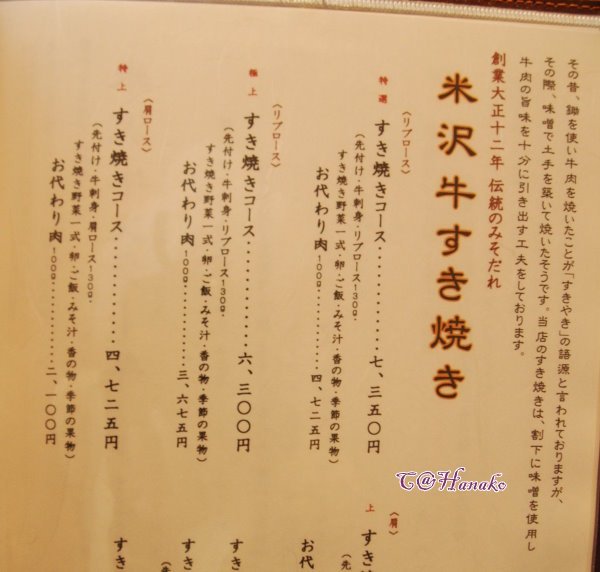 その昔、鋤を使い牛肉を焼いたことが「すきやき」の語源と言われておりますが、
その際、味噌で土手を築いて焼いたそうです。当店のすき焼きは、割下に味噌を使用し
牛肉の旨味を十分に引き出す工夫をしております。
創業大正十二年 伝統のみそだれ
米沢牛すき焼き
〈リブロース〉
特選 すき焼きコース・・・・・・・・・・・・七、三五〇円
(先付け・牛刺身・リブロース130g・
すき焼き野菜一式・卵・ご飯・みそ汁・香の物・季節の果物)
お代わり肉100g・・・・・・・・・四、七二五円
〈リブロース〉
極上 すき焼きコース・・・・・・・・・・・・六、三〇〇円
(先付け・牛刺身・リブロース130g・
すき焼き野菜一式・卵・ご飯・みそ汁・香の物・季節の果物)
お代わり肉100g・・・・・・・・・三、六七五円
〈肩ロース〉
特上 すき焼きコース・・・・・・・・・・・・四、七二五円
(先付け・牛刺身・肩ロース130g・
すき焼き野菜一式・卵・ご飯・みそ汁・香の物・季節の果物)
お代わり肉100g・・・・・・・・・二、一〇〇円
〈肩
上 すき焼
(先
お代
すき
すき
すき
C@Hanako